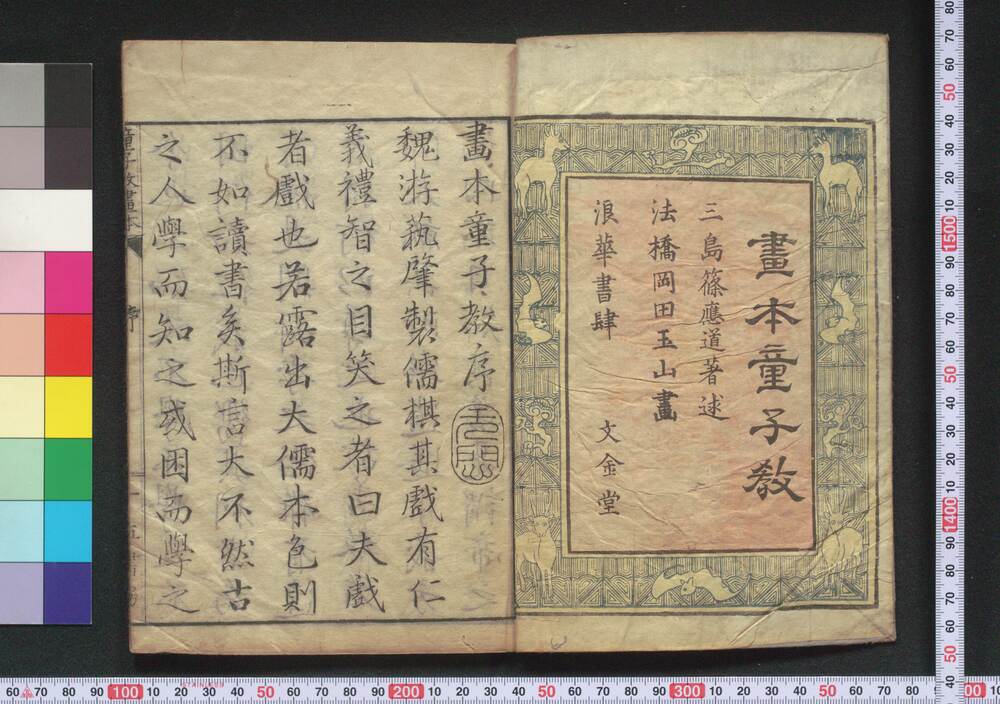 畫本童子教
三島篠應道著述
法橋岡田玉山畫
浪華書肆 文金堂
畫本童子教序
魏游蓺肇製儒棋其戲有仁
義禮智之目笑之者曰夫戲
者戲也若露出大儒本色則
不如讀書矣斯言大不然古
之人學而知之或困而學之
童子教畫本
序